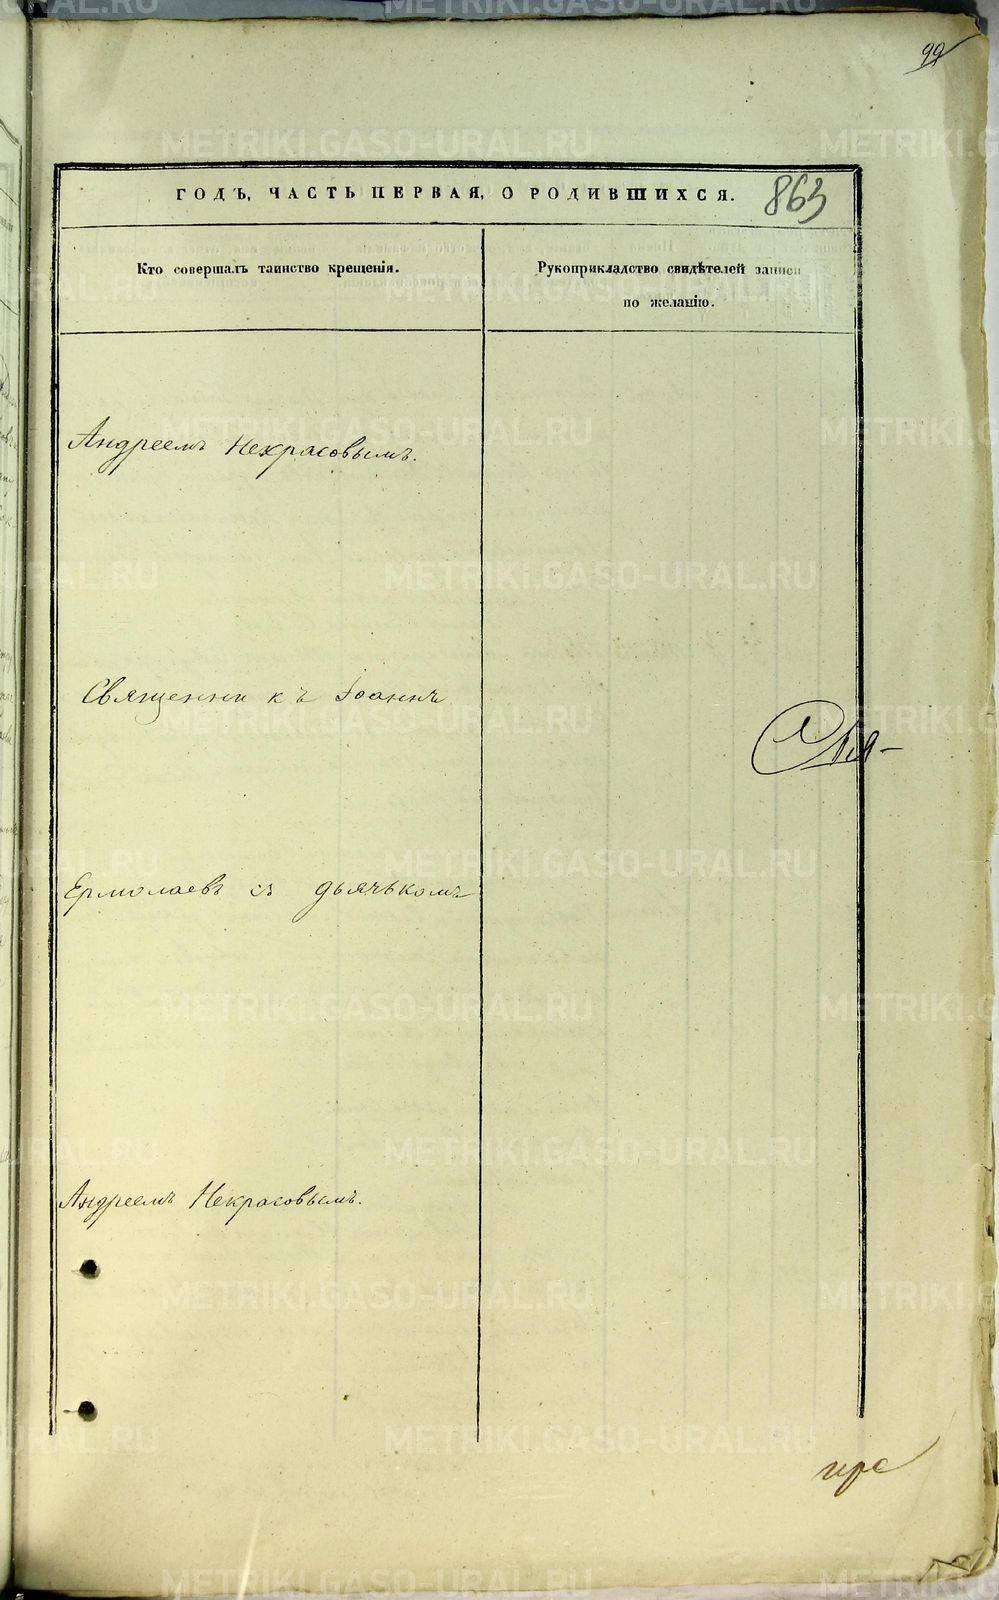 99
ГОДЪ, ЧАСТЬ ПЕРВАЯ, О РОДИВШИХСЯ.
863
Кто совершалъ таинство крещенія.
Рукоприкладство свидѣтелей записи
по желанію.
Андреемъ Некрасовымъ.
Священникъ Іоаннъ
Ермолаевъ съ дьячькомъ
Андреемъ Некрасовымъ.
METRIKI.GASO-URAL.RU